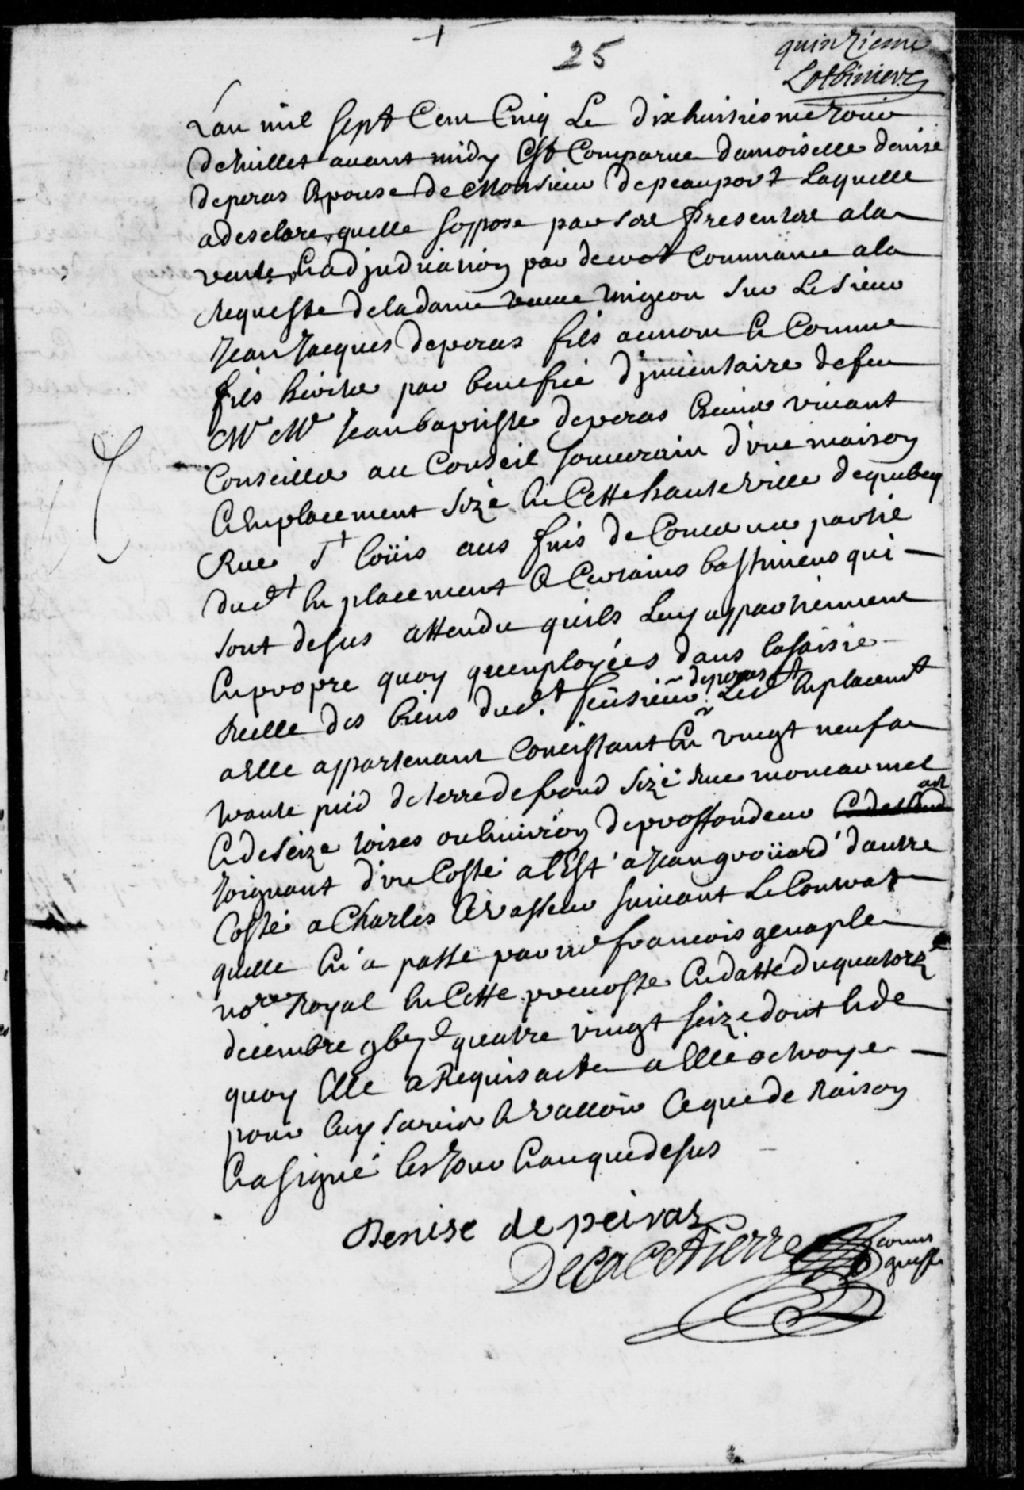 25
quinzieme
Lotbiniere
Lan mil sept Cens Cinq Le dixhuitiesme Jour
de Juillet avant midy Est Comparue damoiselle denise
deperas Epouse de Monsieur depeauport Laquelle
a desclare quelle soppose par ces presentes a la
vente Et adjudication par decret Commancé a la
Requeste de la dame veuve migeon sur Le sieur
Jean Jacques deperas fils au nom Et Comme
fils heritier par benefice dJnventaire de feu
Mr Me Jean baptiste deperas vivant
Conseiller au Conseil souverain d'une maison
Emplacement size En Cette haute ville de quebecq
Rue St Loüis aux fins de partie
dudt Emplacement Et Certains bastimens qui
sont desus attendu quils Luy appartiennent
En propre quoy quemployées dans la saisie
reelle des biens dudt feu sieur deperas Ledt Emplacemt
a Elle appartenant Concistant En vingt neuf a
trante pied de terre de frond sizé Rue mon carmel
Et de seize toises ou Environ de proffondeur
Joignant d'un Costé a lEst a Jean groüard d'autre
Costé a Charles Levasseur suivant Le Contrat
quelle En a passé par me francois genaple
nore Royal En Cette prevosté En datte du quatorze
decembre gbie quatre vingt seize dont Et de
quoy Elle a Requis acte a Elle octroyé
pour luy servir Et valloir Ce que de Raison
Et a signé les Jour Et an que desus
Denise de peiras
DeLaCetierre
commis
greffe